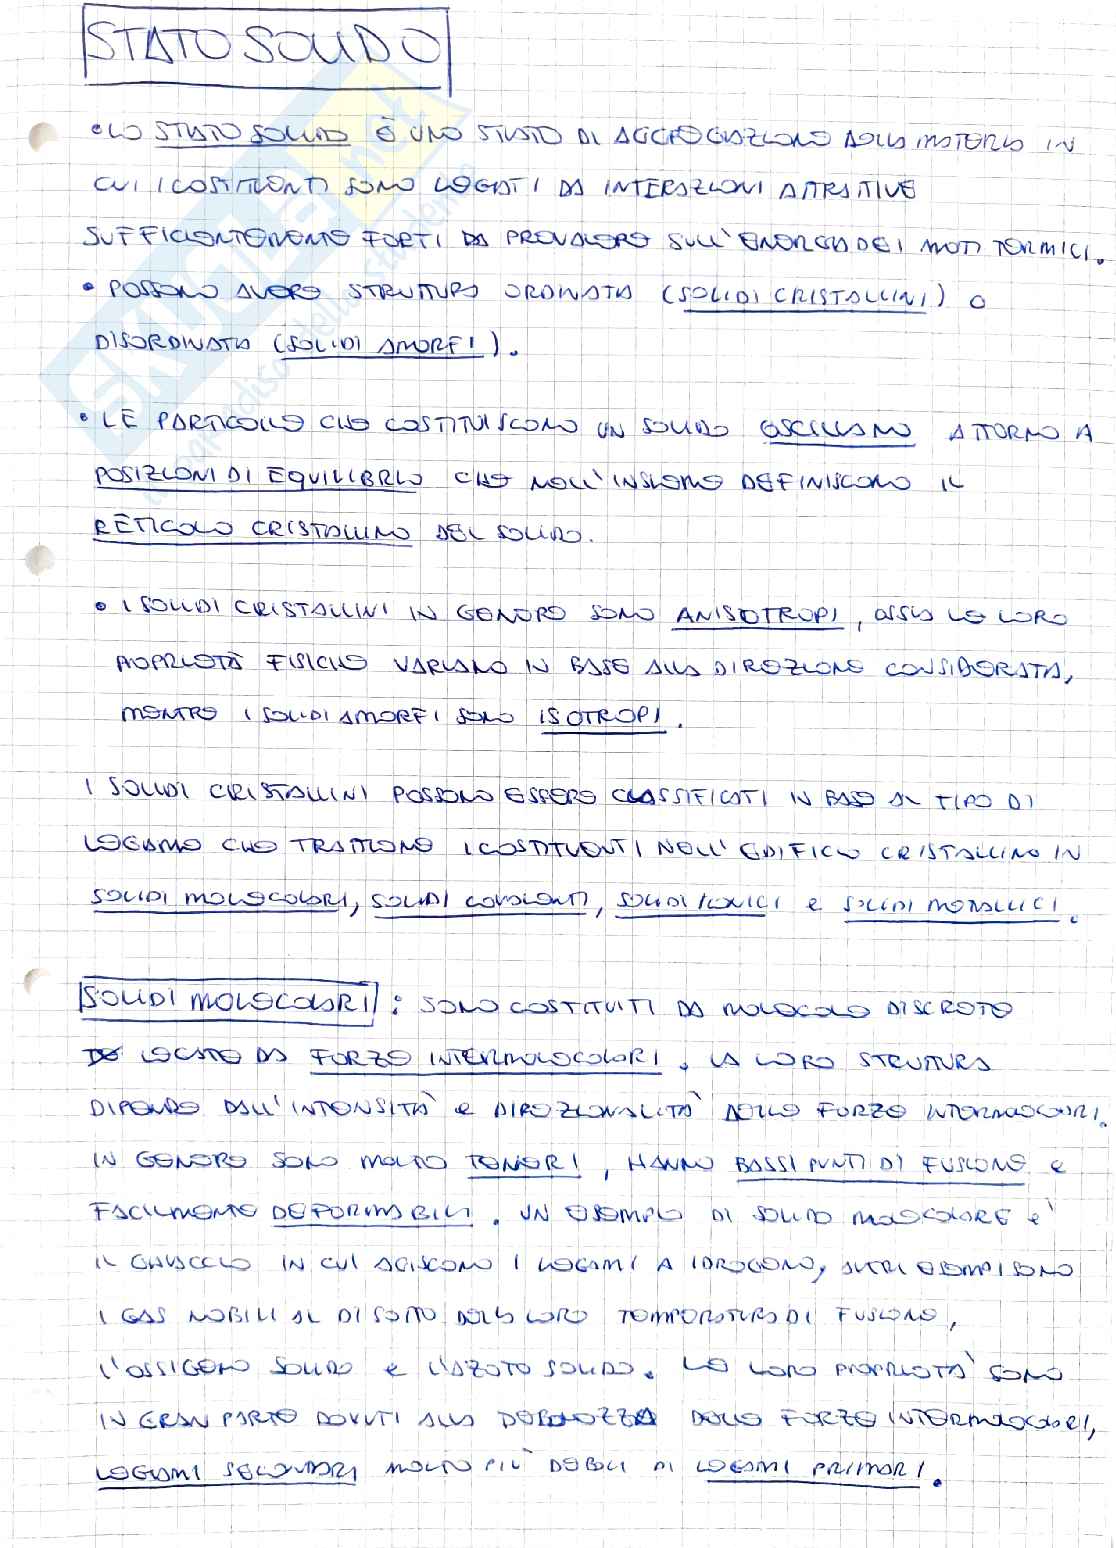 STATO SOLIDO
• LO STATO SOLIDO È UNO STATO DI AGGREGAZIONE DELLA MATERIA IN
CUI I COSTITUENTI SONO LEGATI DA INTERAZIONI ATTRATTIVE
SUFFICIENTEMENTE FORTI DA PREVALERE SULL'ENERGIA DEI MOTI TERMICI.
• POSSONO AVERE STRUTTURA ORDINATA (SOLIDI CRISTALLINI) O
DISORDINATA (SOLIDI AMORFI).
• LE PARTICELLE CHE COSTITUISCONO UN SOLIDO OSCILLANO ATTORNO A
POSIZIONI DI EQUILIBRIO CHE NELL'INSIEME DEFINISCONO IL
RETICOLO CRISTALLINO DEL SOLIDO.
• I SOLIDI CRISTALLINI IN GENERE SONO ANISOTROPI, OSSIA LE LORO
PROPRIETÀ FISICHE VARIANO IN BASE ALLA DIREZIONE CONSIDERATA,
MENTRE I SOLIDI AMORFI SONO ISOTROPI.
I SOLIDI CRISTALLINI POSSONO ESSERE CLASSIFICATI IN BASE AL TIPO DI
LEGAME CHE TRATTIENE I COSTITUENTI NELL'EDIFICIO CRISTALLINO IN
SOLIDI MOLECOLARI, SOLIDI COVALENTI, SOLIDI IONICI e SOLIDI METALLICI.
SOLIDI MOLECOLARI: SONO COSTITUITI DA MOLECOLE DISCRETE
LEGATE DA FORZE INTERMOLECOLARI. LA LORO STRUTTURA
DIPENDE DALL'INTENSITÀ e DIREZIONALITÀ DELLE FORZE INTERMOLECOLARI.
IN GENERE SONO MOLTO TENERI, HANNO BASSI PUNTI DI FUSIONE e
FACILMENTE DEFORMABILI. UN ESEMPIO DI SOLIDO MOLECOLARE e'
IL GHIACCIO IN CUI AGISCONO I LEGAMI A IDROGENO, ALTRI ESEMPI SONO
I GAS NOBILI AL DI SOTTO DELLA LORO TEMPERATURA DI FUSIONE,
L'OSSIGENO SOLIDO e L'AZOTO SOLIDO. LE LORO PROPRIETÀ SONO
IN GRAN PARTE DOVUTI ALLA DEBOLEZZA DELLE FORZE INTERMOLECOLARI,
LEGAMI SECONDARI MOLTO PIÙ DEBOLI DI LEGAMI PRIMARI.
SKUOLA.net
il paradiso dello studente